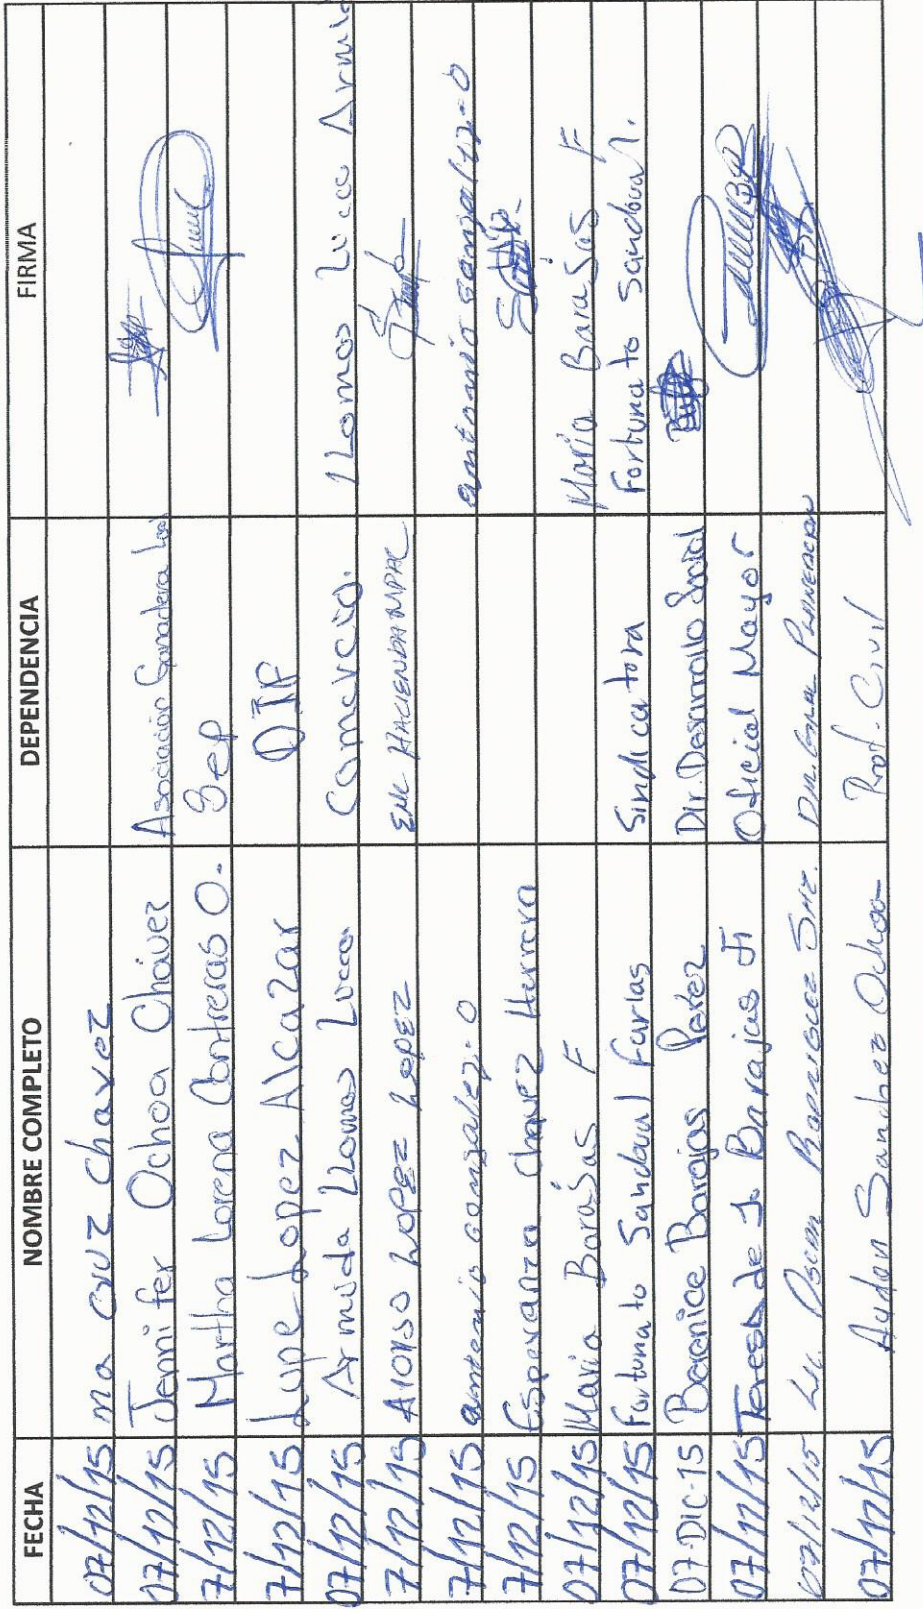 FECHA NOMBRE COMPLETO DEPENDENCIA FIRMA
07/12/15 ma cruz chavez
07/12/15 Jennifer Ochoa Chávez Asociación Ganadera
7/12/15 Martha Lorena Contreras O. Sep
7/12/15 Lupe Lopez Alcazar DIF
07/12/15 Armida LLamas Lucca Comercio. LLamas Lucca Armida
7/12/15 Alonso Lopez Lopez HACIENDA MPAL
7/12/15 antonio gonzalez. O antonio gonzalez. O
7/12/15 Esperanza Chavez Herrera
07/12/15 María Barajas F María Barajas F
07/12/15 Fortunato Sandoval Farías Sindicatora Fortunato Sandoval.
07-DIC-15 Berenice Barajas Perez Dir. Desarrollo Social
07/12/15 Teresa de J. Barajas Oficial Mayor
07/12/15 Lic. Oscar PLANEACION
07/12/15 Aydan Sanchez Ochoa Prot. Civil